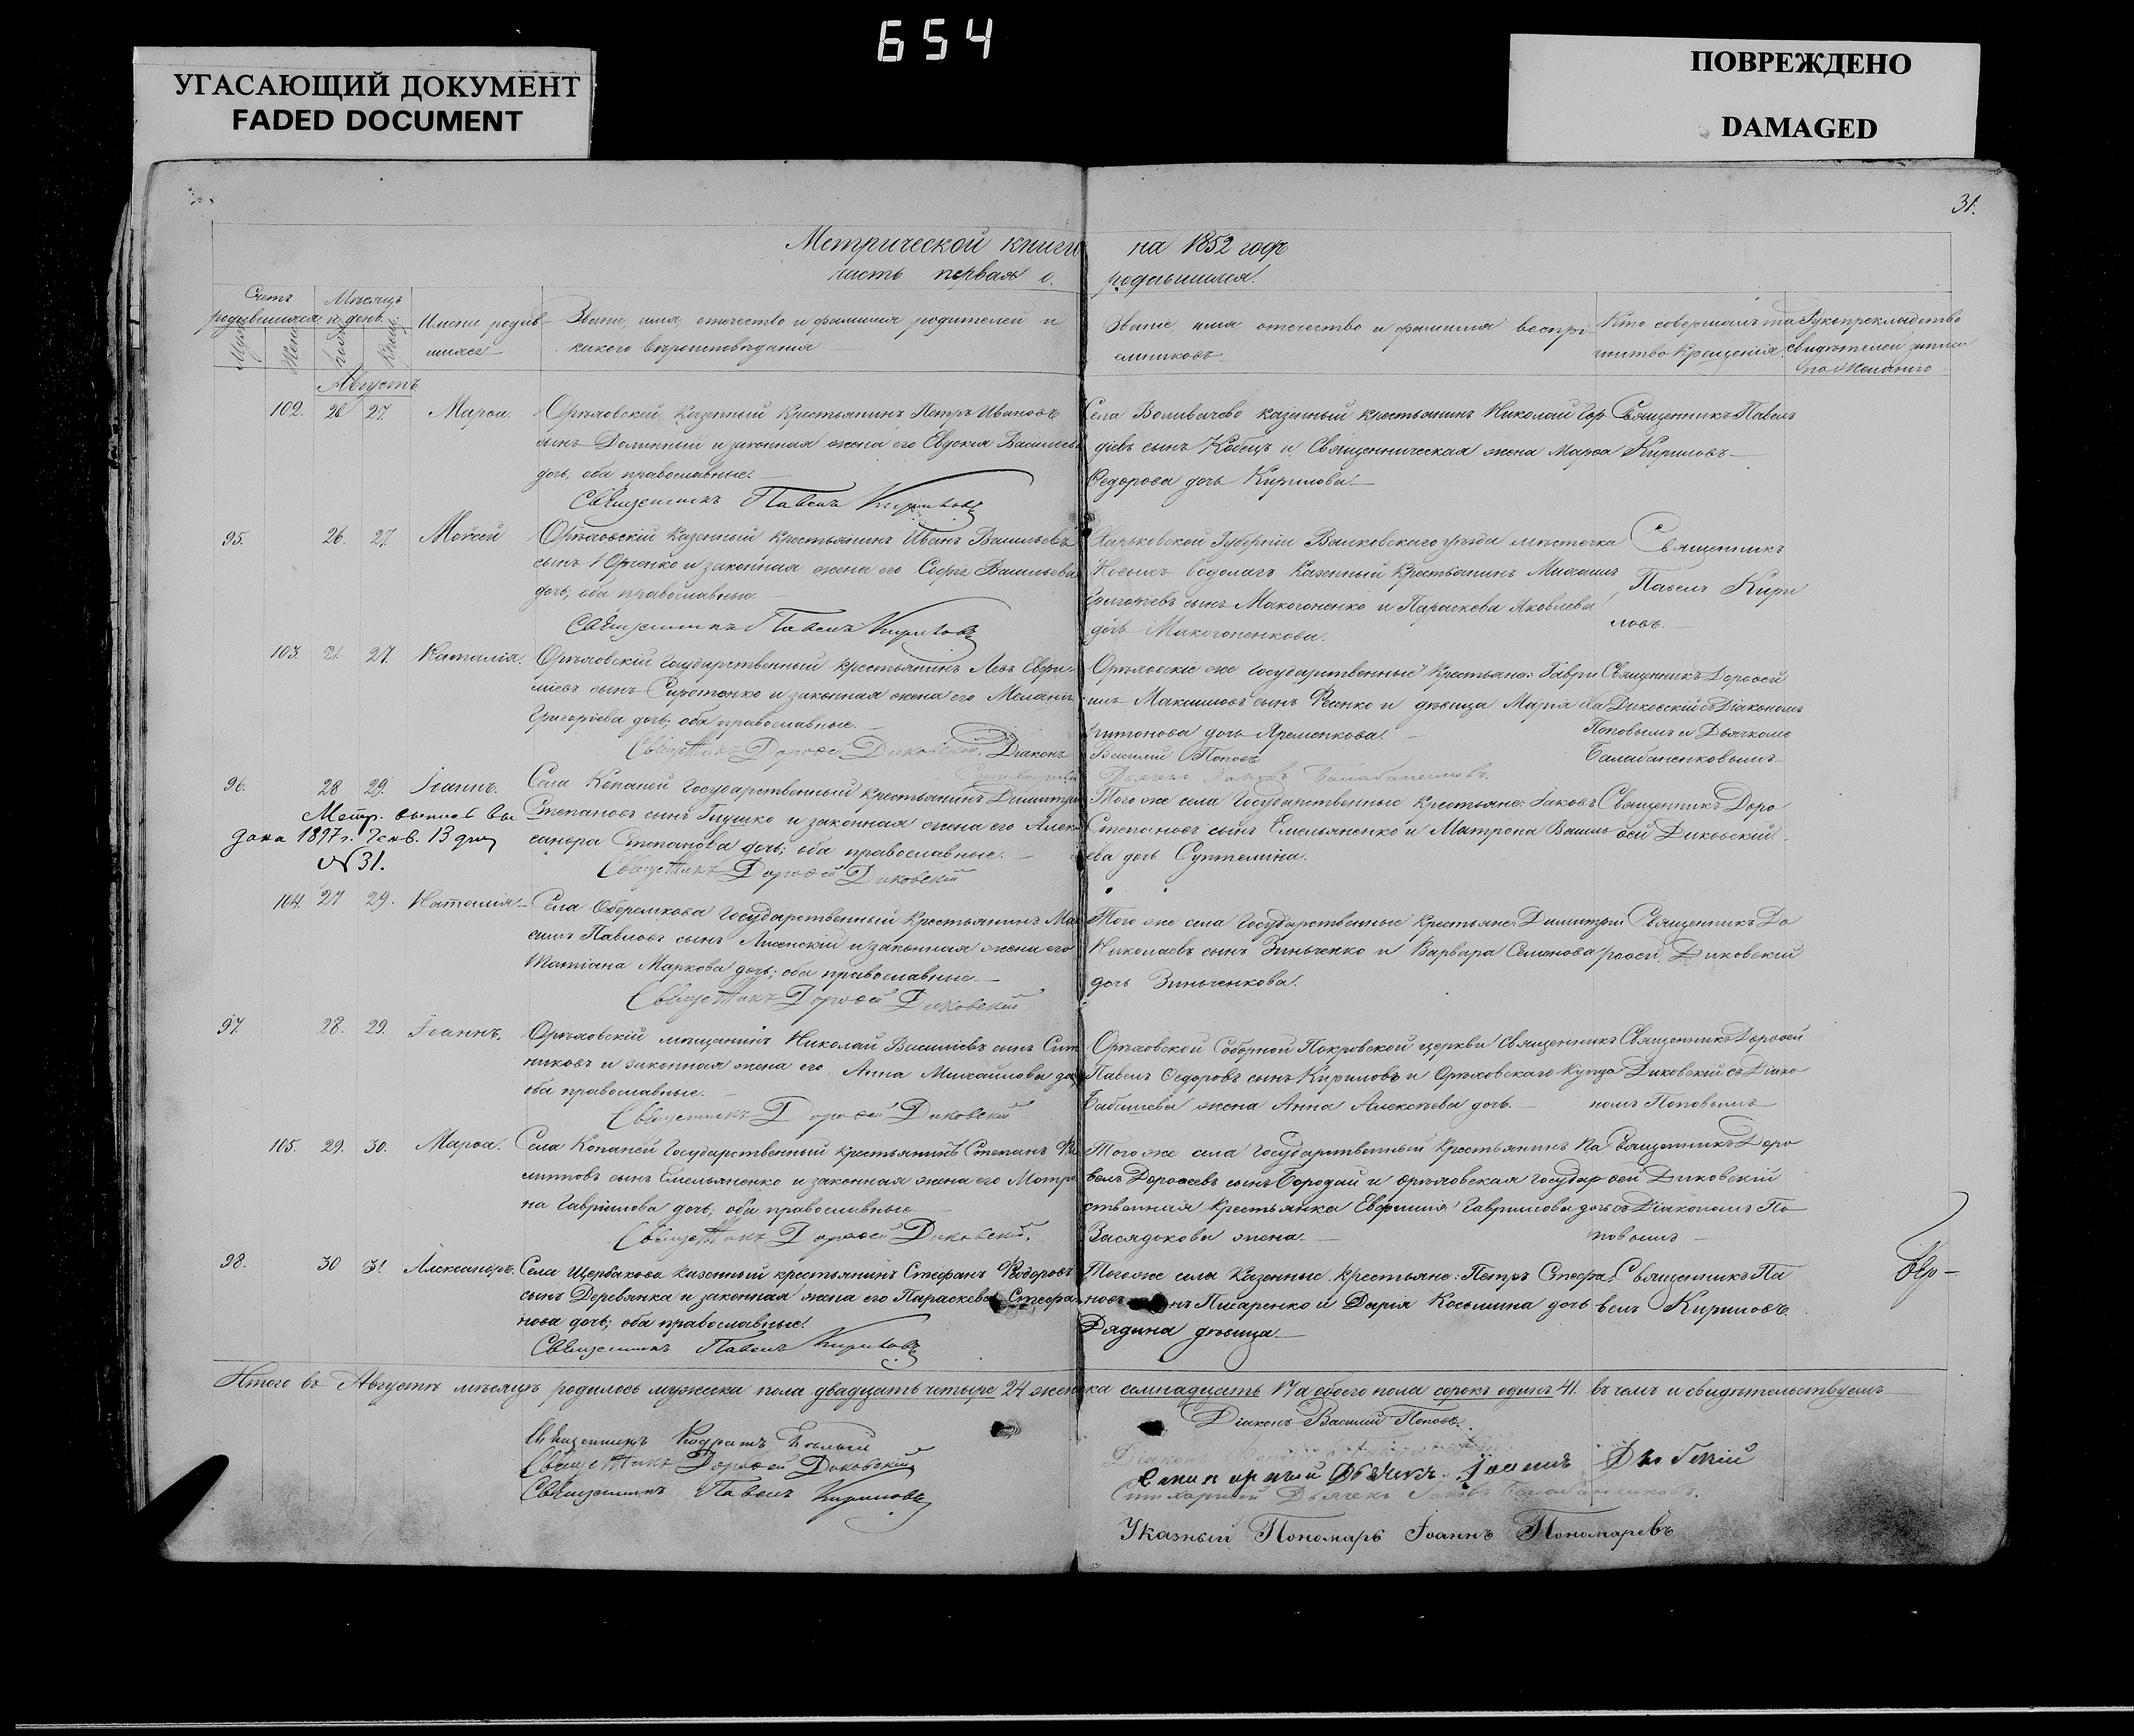 654
УГАСАЮЩИЙ ДОКУМЕНТ
FADED DOCUMENT
ПОВРЕЖДЕНО
DAMAGED
31.
Метрической книги на 1852 годъ
часть первая о родившихся.
Счетъ родившихся
Мѣсяцъ и день
Имена родившихся
Званіе, имя, отечество и фамилія родителей и какого вѣроисповѣданія
Званіе, имя отечество и фамилія воспріемниковъ
Кто совершалъ таинство крещенія
Рукоприкладство свидѣтелей записи по желанію
Августъ
102. 26 27. Марѳа.
Орѣховскій казенный крестьянинъ Петръ Ивановъ
сынъ Долинный и законная жена его Евдокія Васильева
дочь, оба православные.
Священникъ Павелъ Кириловъ
Села казенный крестьянинъ Николай
діевъ сынъ Кобецъ и Священническая жена Марѳа
Ѳедорова дочь Кирилова.
Священникъ Павелъ
Кириловъ
95. 26. 27. Мойсей
Орѣховскій казенный крестьянинъ Иванъ Васильевъ
сынъ Юрченко и законная жена его Софія Васильева
дочь; оба православные.
Священникъ Павелъ Кириловъ
Харьковской Губерніи Валковскаго уѣзда мѣстечка
Новыхъ Водолагъ казенный крестьянинъ Михаилъ
Григорьевъ сынъ Макогоненко и Параскева Яковлева
дочь Макогоненкова.
Священникъ
Павелъ Кири
ловъ.
103. 21. 27. Наталія.
Орѣховскій Государственный крестьянинъ Левъ Евфи-
міевъ сынъ Сиротенко и законная жена его Меланія
Григоріева дочь; оба православные.
Священникъ Дороѳей Диковскій. Діаконъ
Василій Поповъ
Орѣховскіе же государственные крестьяне: Гаври
илъ Максимовъ сынъ Фесенко и дѣвица Марія Ха
ритонова дочь Яременкова.
Священникъ Дороѳей
Диковскій съ Діакономъ
Поповымъ и Дьячкомъ
Балабаненковымъ
Дьячекъ Іаковъ Балабаненковъ.
96. 28 29. Іоаннъ.
Метр. выпись вы
дана 1897 г. Генв. 13 дня
№ 31.
Села Копаней Государственный крестьянинъ Димитрій
Степановъ сынъ Глушко и законная жена его Алек
сандра Степанова дочь; оба православные.
Священникъ Дороѳей Диковскій
Того же села Государственные крестьяне: Іаковъ
Степановъ сынъ Емельяненко и Матрона Василь
ева дочь Суптелина.
Священникъ Доро
ѳей Диковскій
104. 27 29. Наталія.
Села Оберемкова Государственный крестьянинъ Мак
симъ Павловъ сынъ Лисенскій и законная жена его
Татіана Маркова дочь; оба православные
Священникъ Дороѳей Диковскій
Того же села Государственные крестьяне: Димитрій
Николаевъ сынъ Зинченко и Варвара Семенова
дочь Зинченкова.
Священникъ До
роѳей Диковскій
97. 28. 29. Іоаннъ.
Орѣховскій мѣщанинъ Николай Васильевъ сынъ Сит
никовъ и законная жена его Анна Михайлова дочь
оба православные.
Священникъ Дороѳей Диковскій
Орѣховской Соборной Покровской церкви Священникъ
Павелъ Ѳедоровъ сынъ Кириловъ и Орѣховскаго купца
Бабашева жена Анна Алексѣева дочь.
Священникъ Дороѳей
Диковскій съ Діако
номъ Поповымъ
105. 29. 30. Марѳа.
Села Копаней Государственный крестьянинъ Степанъ Фи
липповъ сынъ Емельяненко и законная жена его Матро
на Гавріилова дочь; оба православные
Священникъ Дороѳей Диковскій.
Того же села Государственный крестьянинъ Па
велъ Дороѳеевъ сынъ Бородай и орѣховская государ
ственная крестьянка Евфимія Гаврилова дочь
Засядькова жена.
Священникъ Доро
ѳей Диковскій
съ Діакономъ По
повымъ
98. 30 31. Александръ.
Села Щербакова казенный крестьянинъ Стефанъ Ѳедоровъ
сынъ Деревянка и законная жена его Параскева Стефа
нова дочь; оба православные.
Священникъ Павелъ Кириловъ
Того же села Казенные крестьяне: Петръ Стефа
новъ Писаренко и Дарія Косьмина дочь
Дядина дѣвица.
Священникъ Па
велъ Кириловъ
Итого въ Августѣ мѣсяцѣ родилось мужеска пола двадцать четыре 24 женска семнадцать 17 а обоего пола сорокъ одинъ 41. въ чемъ и свидѣтельствуемъ
Священникъ Кодратъ
Священникъ Дороѳей Диковскій
Священникъ Павелъ Кириловъ
Діаконъ Василій Поповъ.
Стихарный Дьячекъ Іоаннъ
Стихарный Дьячекъ Іаковъ Балабаненковъ.
Указный Пономарь Іоаннъ Пономаревъ